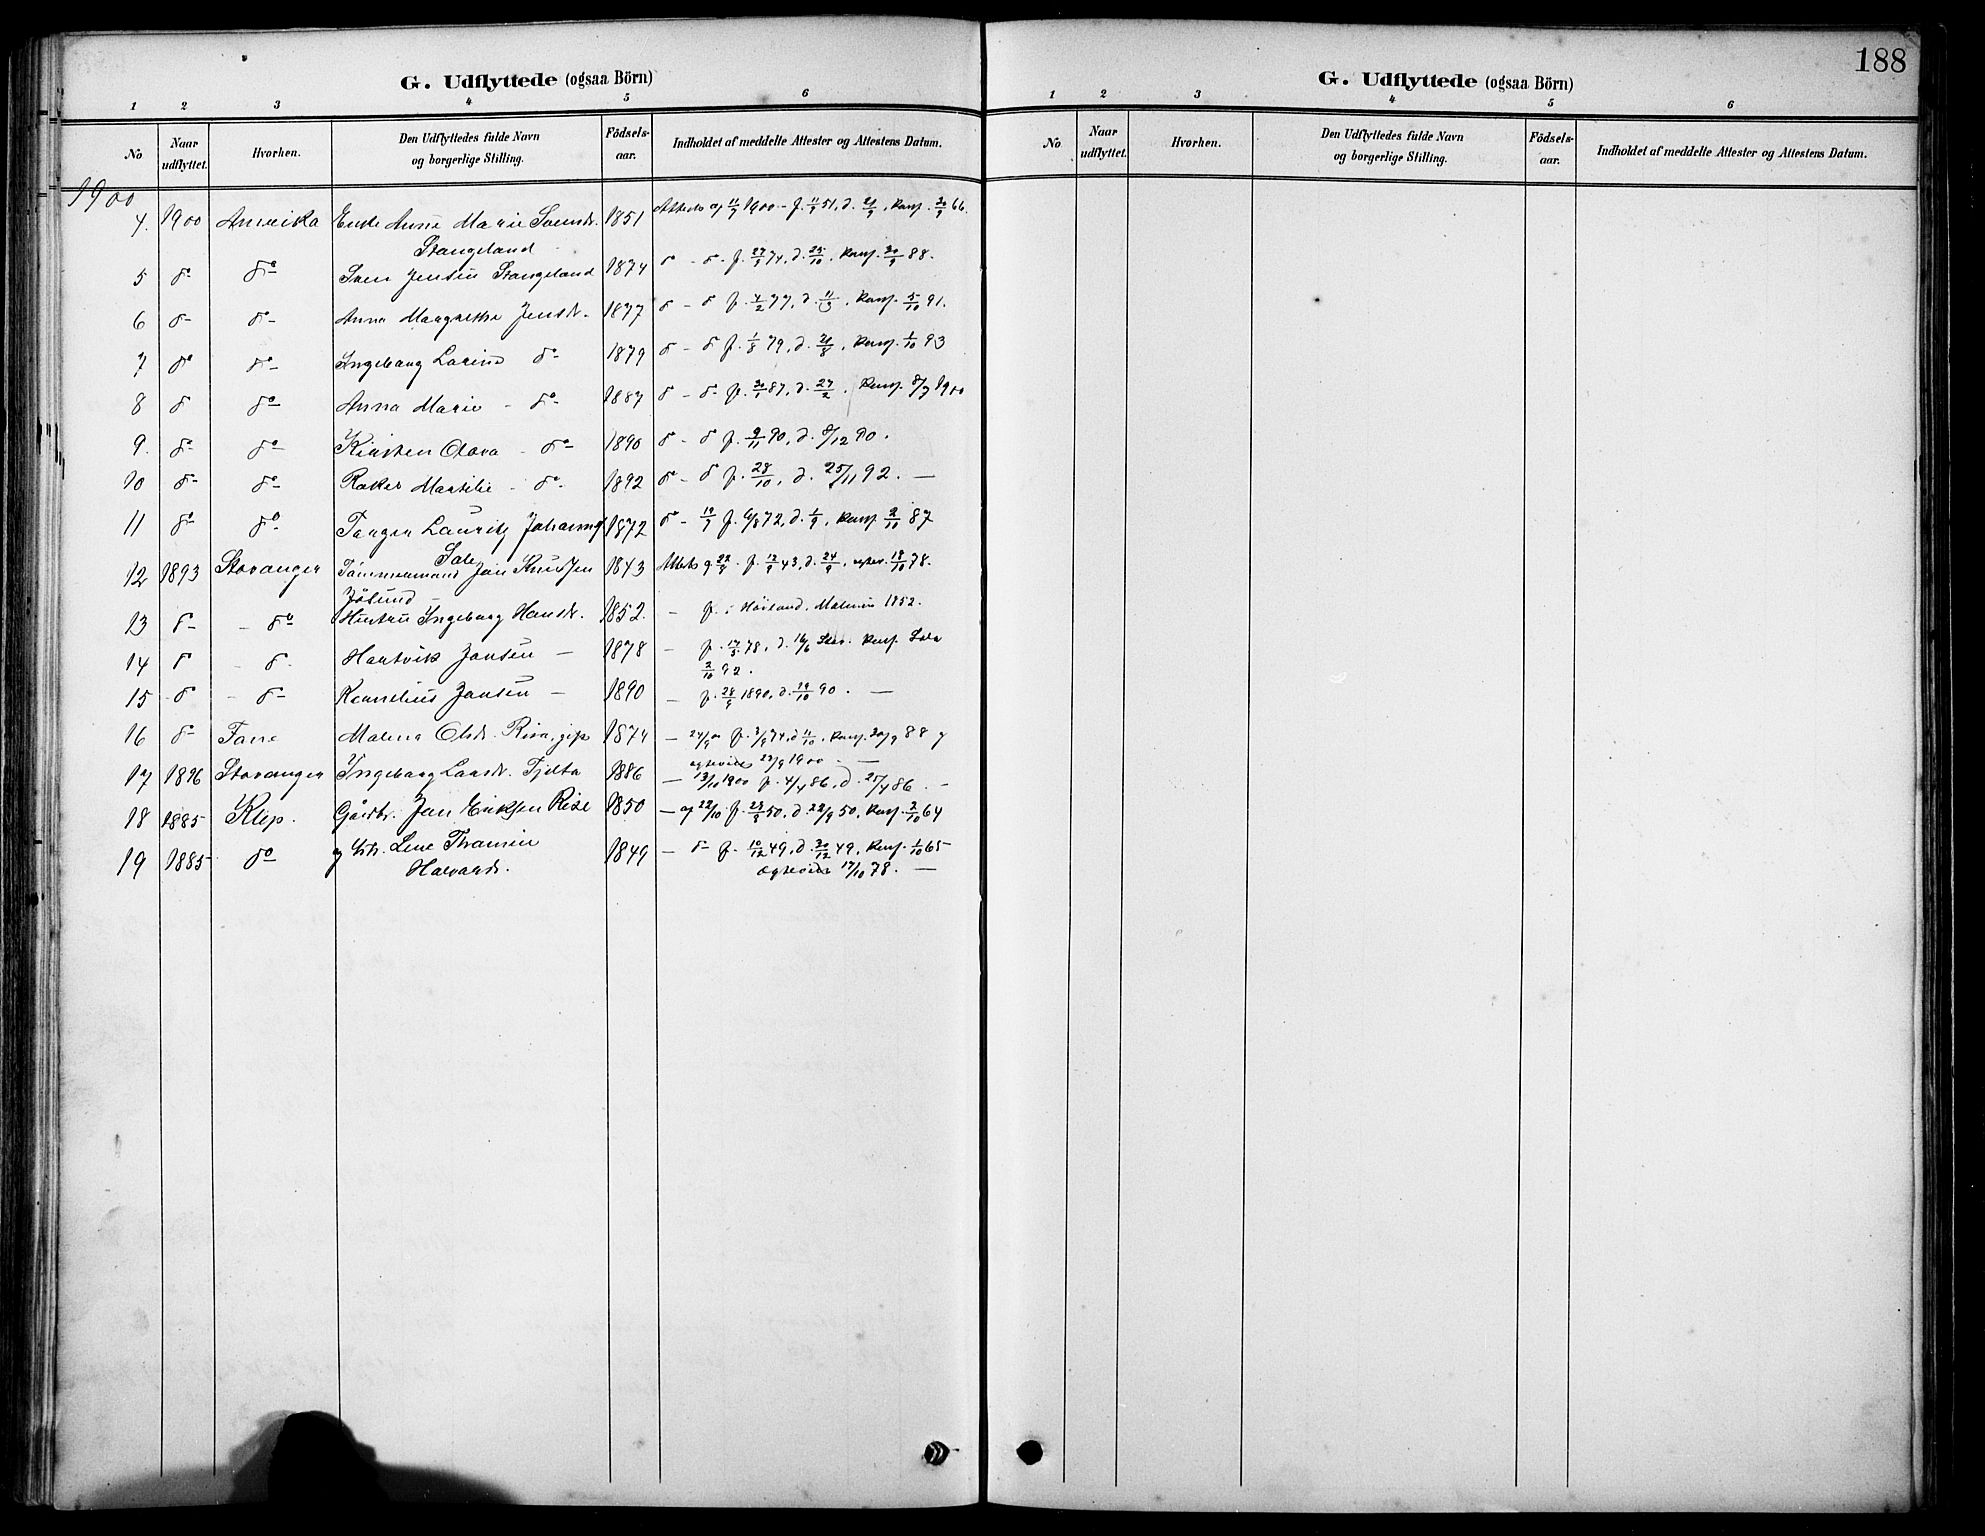 188
G. Udflyttede (ogsaa Börn)
1 2 3 4 5 6
No Naar udflyttet. Hvorhen. Den Udflyttedes fulde Navn og borgerlige Stilling. Födsels-aar. Indholdet af meddelte Attester og Attestens Datum.
1900
4. 1900 Amerika Enke Anne Marie Svendsd. 1851 Attests af 11/9 1900 - f. 11/9 51, d. 21/9, konf. 30/9 66.
Stangeland
5 do do Sven Jensen Stangeland 1874 do - do f. 27/9 74, d. 25/10, konf. 30/9 88.
6 do do Anna Margrethe Jensd. 1877 do - do f. 4/2 77, d. 11/3, konf. 5/10 91.
7 do do Ingeborg Lorine do 1879 do - do f. 1/8 79, d. 31/8, konf. 1/10 93
8 do do Anna Marie - do 1887 do - do f. 30/1 87, d. 27/2, konf. 8/7 1900
9. do do Kirsten Olava - do 1890 do - do f. 9/11 90, d. 8/12 90.
10 do do Rakel Martilie - do 1892 do - do f. 28/10, d. 25/11 92. —
11 do do Torger Lauritz 1872 do - f. 6/8 72, d. 1/9, konf. 2/10 87
Sole
12 1893 Stavanger Tömmermand Jon Knudsen 1843 Attests f. 12/9 43, d. 24/9, 18/10 78.
Jåsund
13 do - do Hustru Ingeborg Hansd. 1852. - f. i Höiland, Malmin 1852.
14 do - do Hartvik Jonsen — 1878 - f. 17/5 78, d. 16/6 Stav. konf. Sola
2/10 92.
15 - do - do Kornelius Jonsen — 1890 - f. 28/9 1890, d. 19/10 90. —
16 do Malena Olsd. Risa, gift 1874 - f. 3/9 74, d. 11/10, konf. 30/9 88 og
17 1896 Stavanger Ingeborg Larsd. Tjelta 1886 — 13/10 1900 f. 4/4 86, d. 25/4 86. -
18 1885 Klep. Gårdbr. Jon Eriksen Rise 1850 — af 22/10 f. 28/8 50, d. 22/9 50, konf. 2/10 64
19 1885 do og Lene Thomine 1849 - do f. 10/12 49, d. 30/12 49, konf. 1/10 65
Halvards. 17/10 78. —
G. Udflyttede (ogsaa Börn)
1 2 3 4 5 6
No Naar udflyttet. Hvorhen. Den Udflyttedes fulde Navn og borgerlige Stilling. Födsels-aar. Indholdet af meddelte Attester og Attestens Datum.